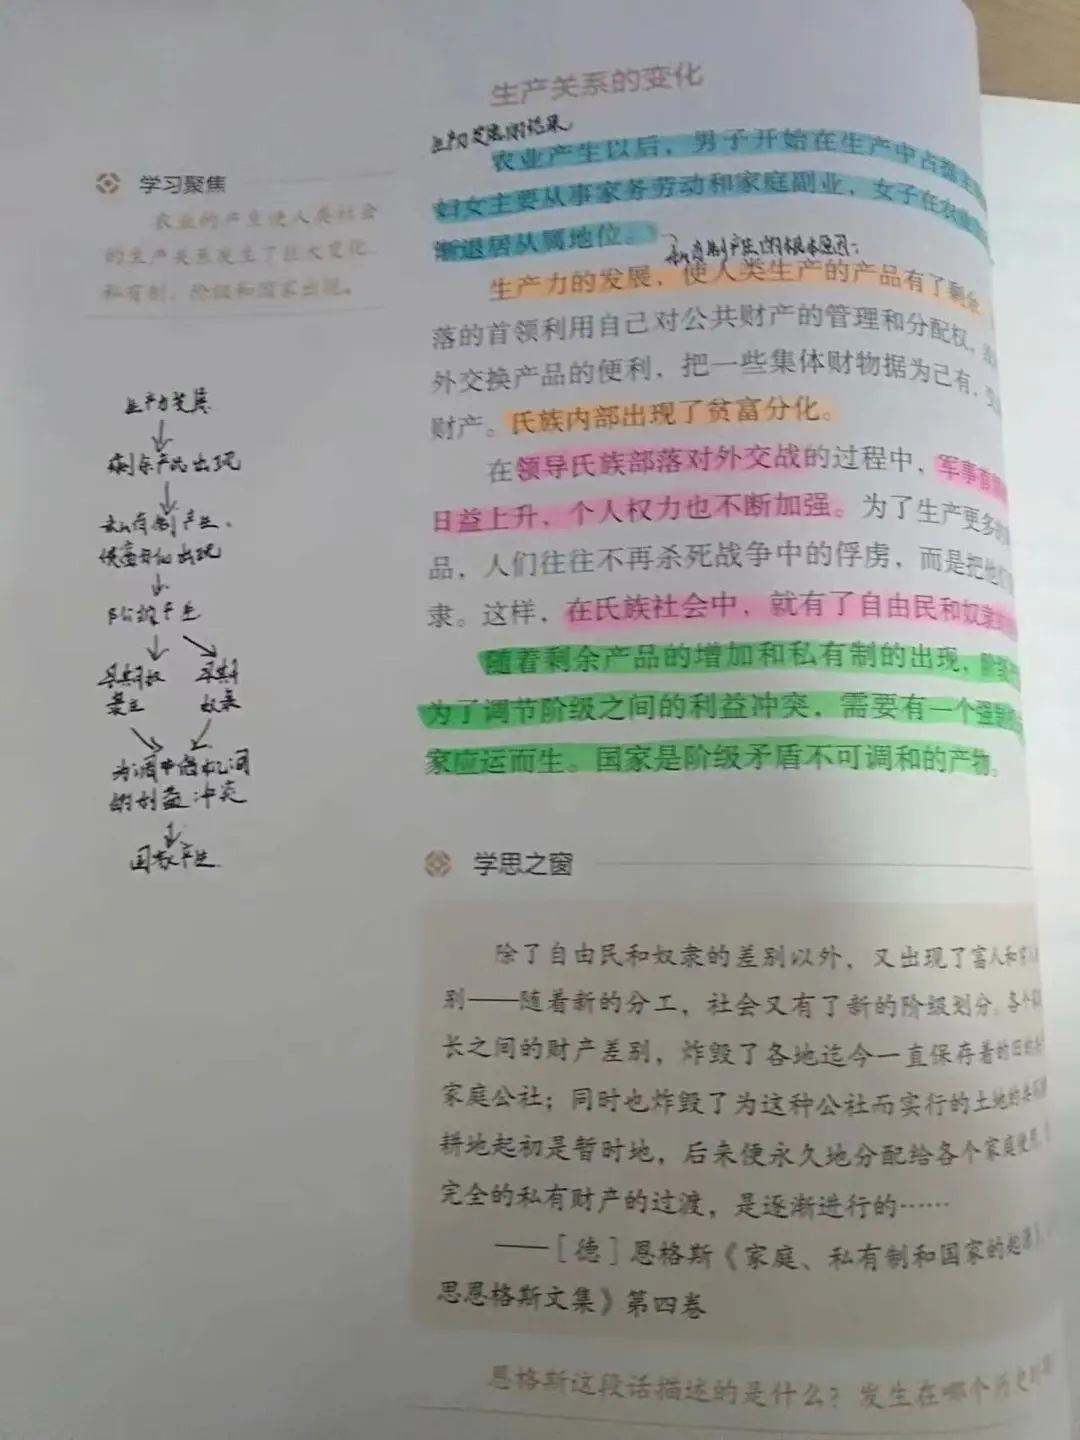 生产关系的变化
学习聚焦
农业的产生使人类社会
的生产关系发生了巨大变化，
私有制、阶级和国家出现。
农业产生以后，男子开始在生产中占据主
妇女主要从事家务劳动和家庭副业，女子在农业
渐退居从属地位。
私有制产生的根本原因：
生产力的发展，使人类生产的产品有了剩余
落的首领利用自己对公共财产的管理和分配权，
外交换产品的便利，把一些集体财物据为己有，
财产。氏族内部出现了贫富分化。
在领导氏族部落对外交战的过程中，军事首
日益上升，个人权力也不断加强。为了生产更多的
品，人们往往不再杀死战争中的俘虏，而是把他们
隶。这样，在氏族社会中，就有了自由民和奴隶
随着剩余产品的增加和私有制的出现，阶级
为了调节阶级之间的利益冲突，需要有一个强制
家应运而生。国家是阶级矛盾不可调和的产物。
生产力发展
剩余产品出现
私有制产生、
贫富分化出现
阶级产生
奴隶
的利益冲突
国家产生
学思之窗
除了自由民和奴隶的差别以外，又出现了富人和穷人
别——随着新的分工，社会又有了新的阶级划分。各个家
长之间的财产差别，炸毁了各地迄今一直保存着的旧的
家庭公社；同时也炸毁了为这种公社而实行的土地的共
耕地起初是暂时地，后来便永久地分配给各个家庭使用，
完全的私有财产的过渡，是逐渐进行的……
——［德］恩格斯《家庭、私有制和国家的起源》，
思恩格斯文集》第四卷
恩格斯这段话描述的是什么？发生在哪个历史